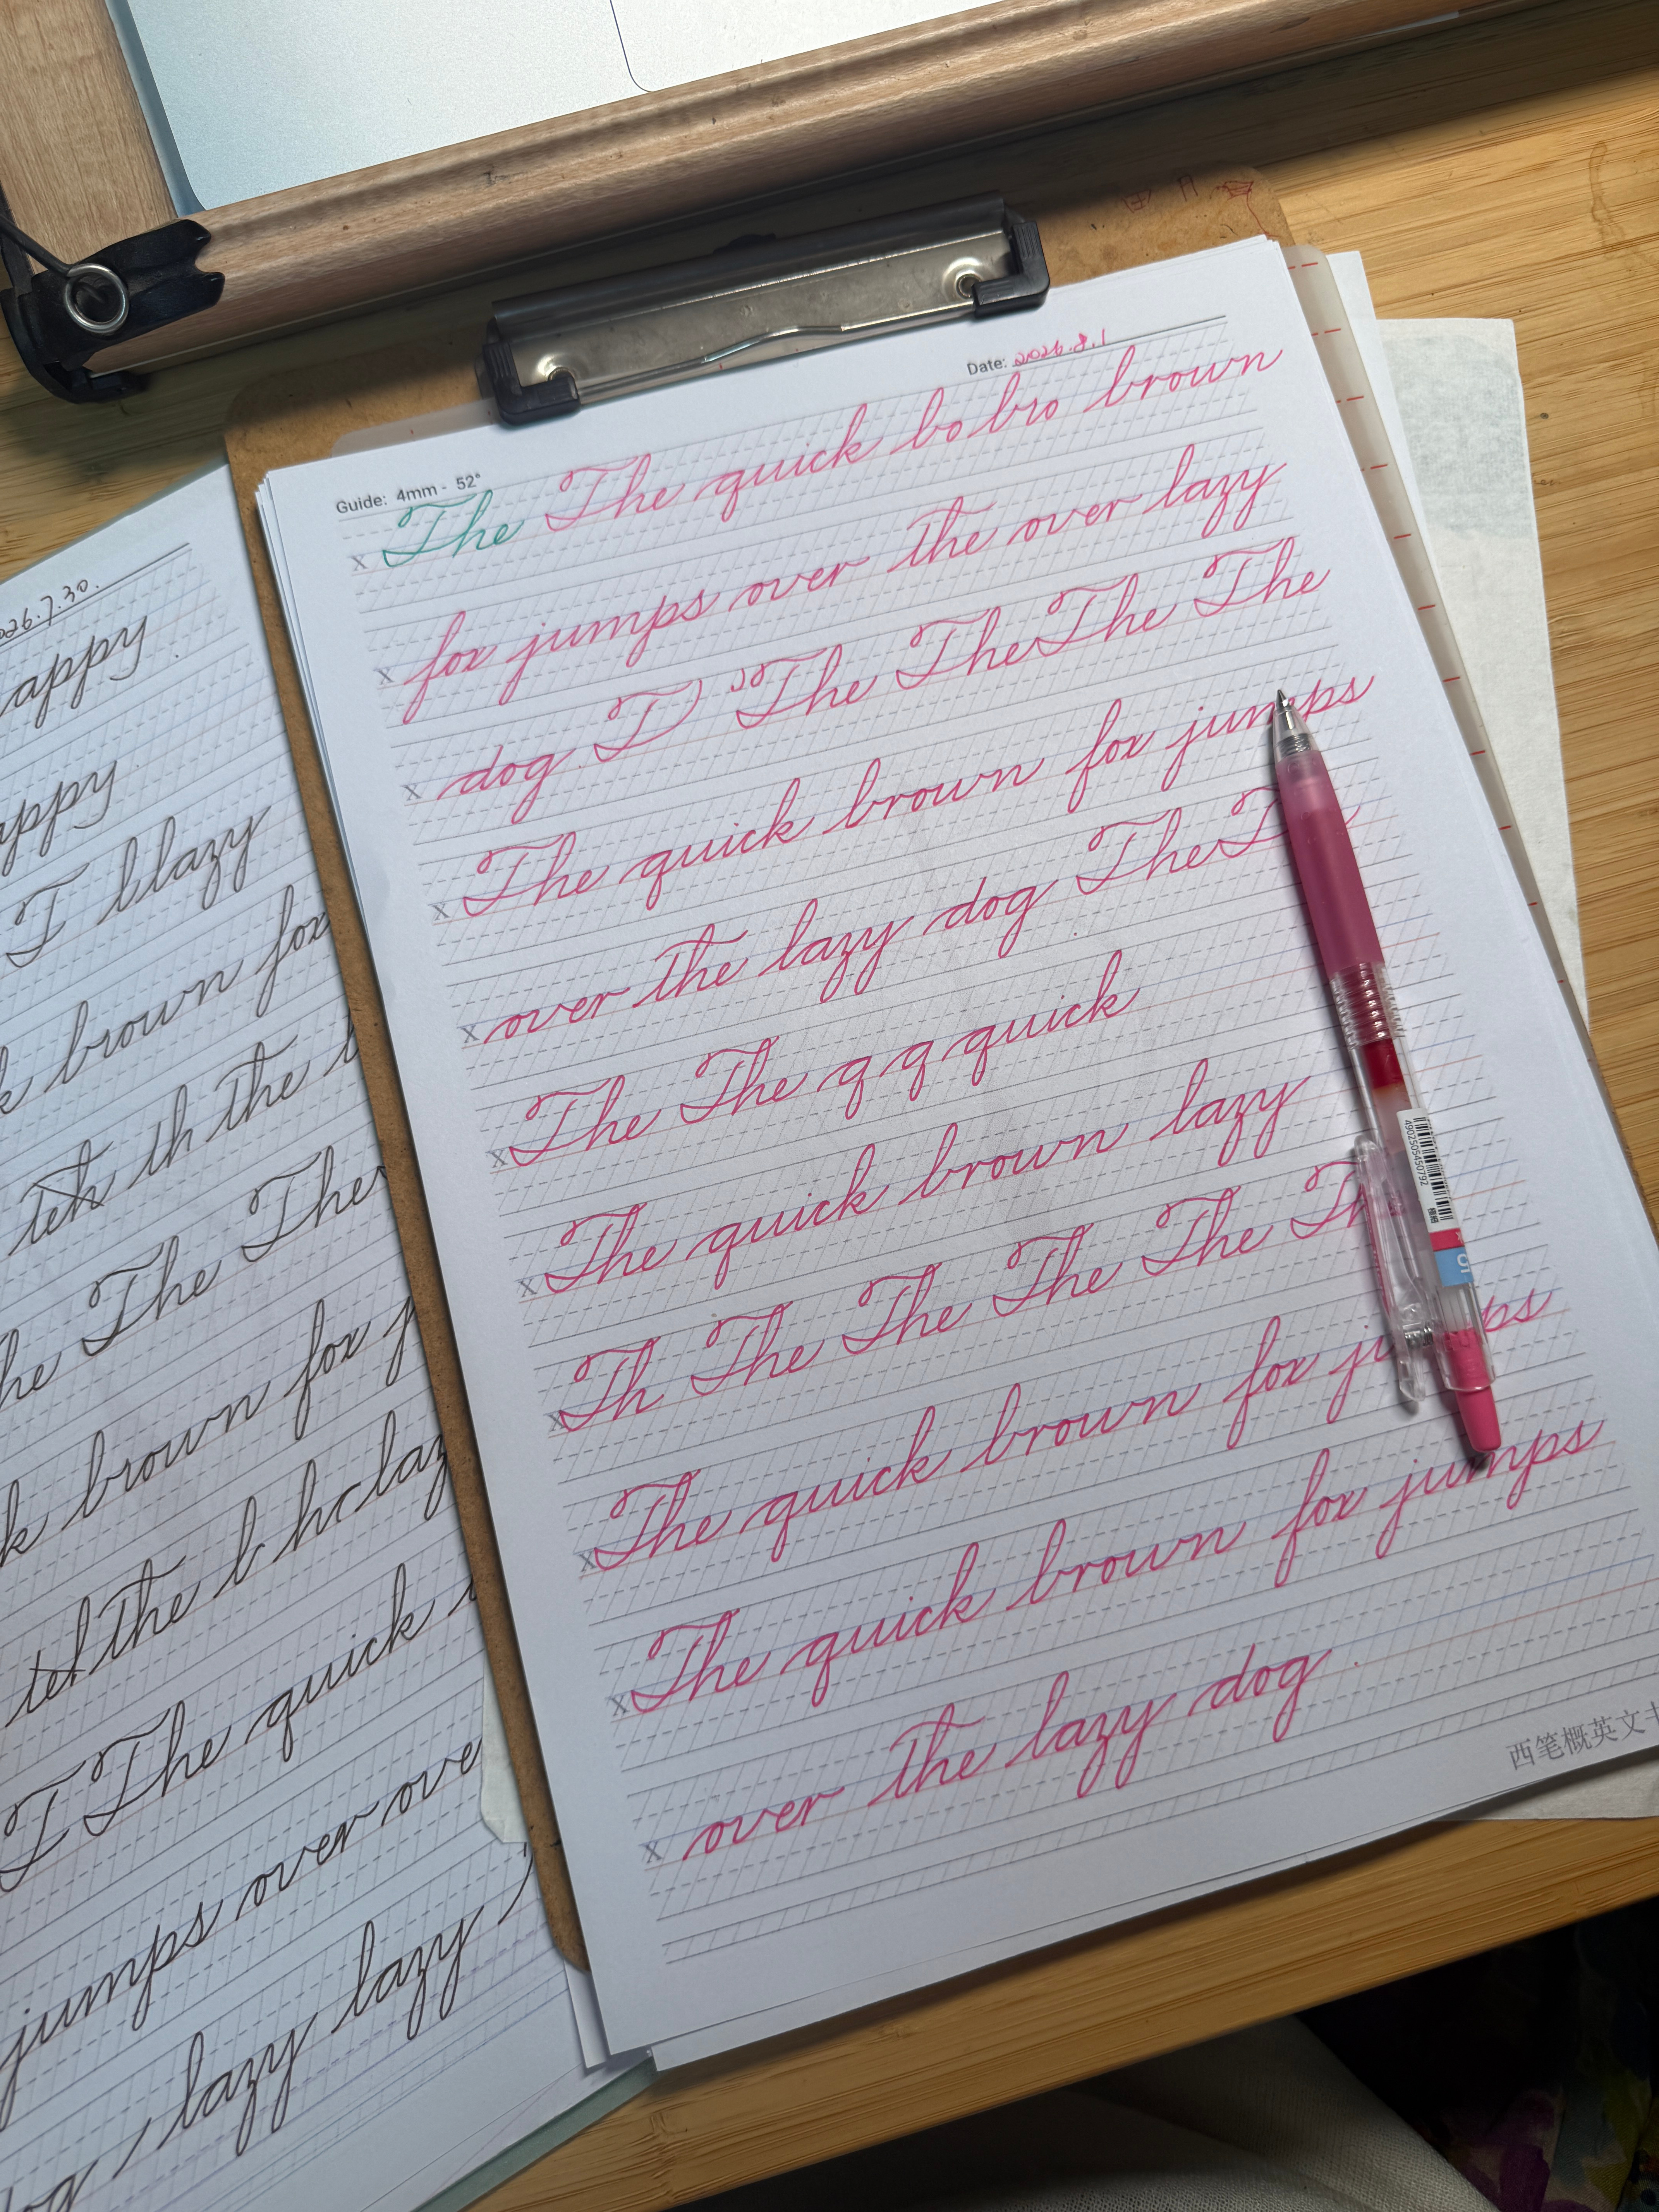 2026.7.30.
appy
appy
T blazy
k brown fox
teh th the t
he The The
k brown fox j
teh the b h laz
T The quick
jumps over ove
, lazy lazy
og
Guide: 4mm - 52°
Date: 2026.8.1
x The The quick bo bro brown
x fox jumps over the over lazy
x dog. T The The The The
x The quick brown fox jumps
x over the lazy dog The T
x The The q q quick
x The quick brown lazy
x Th The The The The Th
x The quick brown fox ju ps
x The quick brown fox jumps
x over the lazy dog.
西笔概英文书
4902505450792